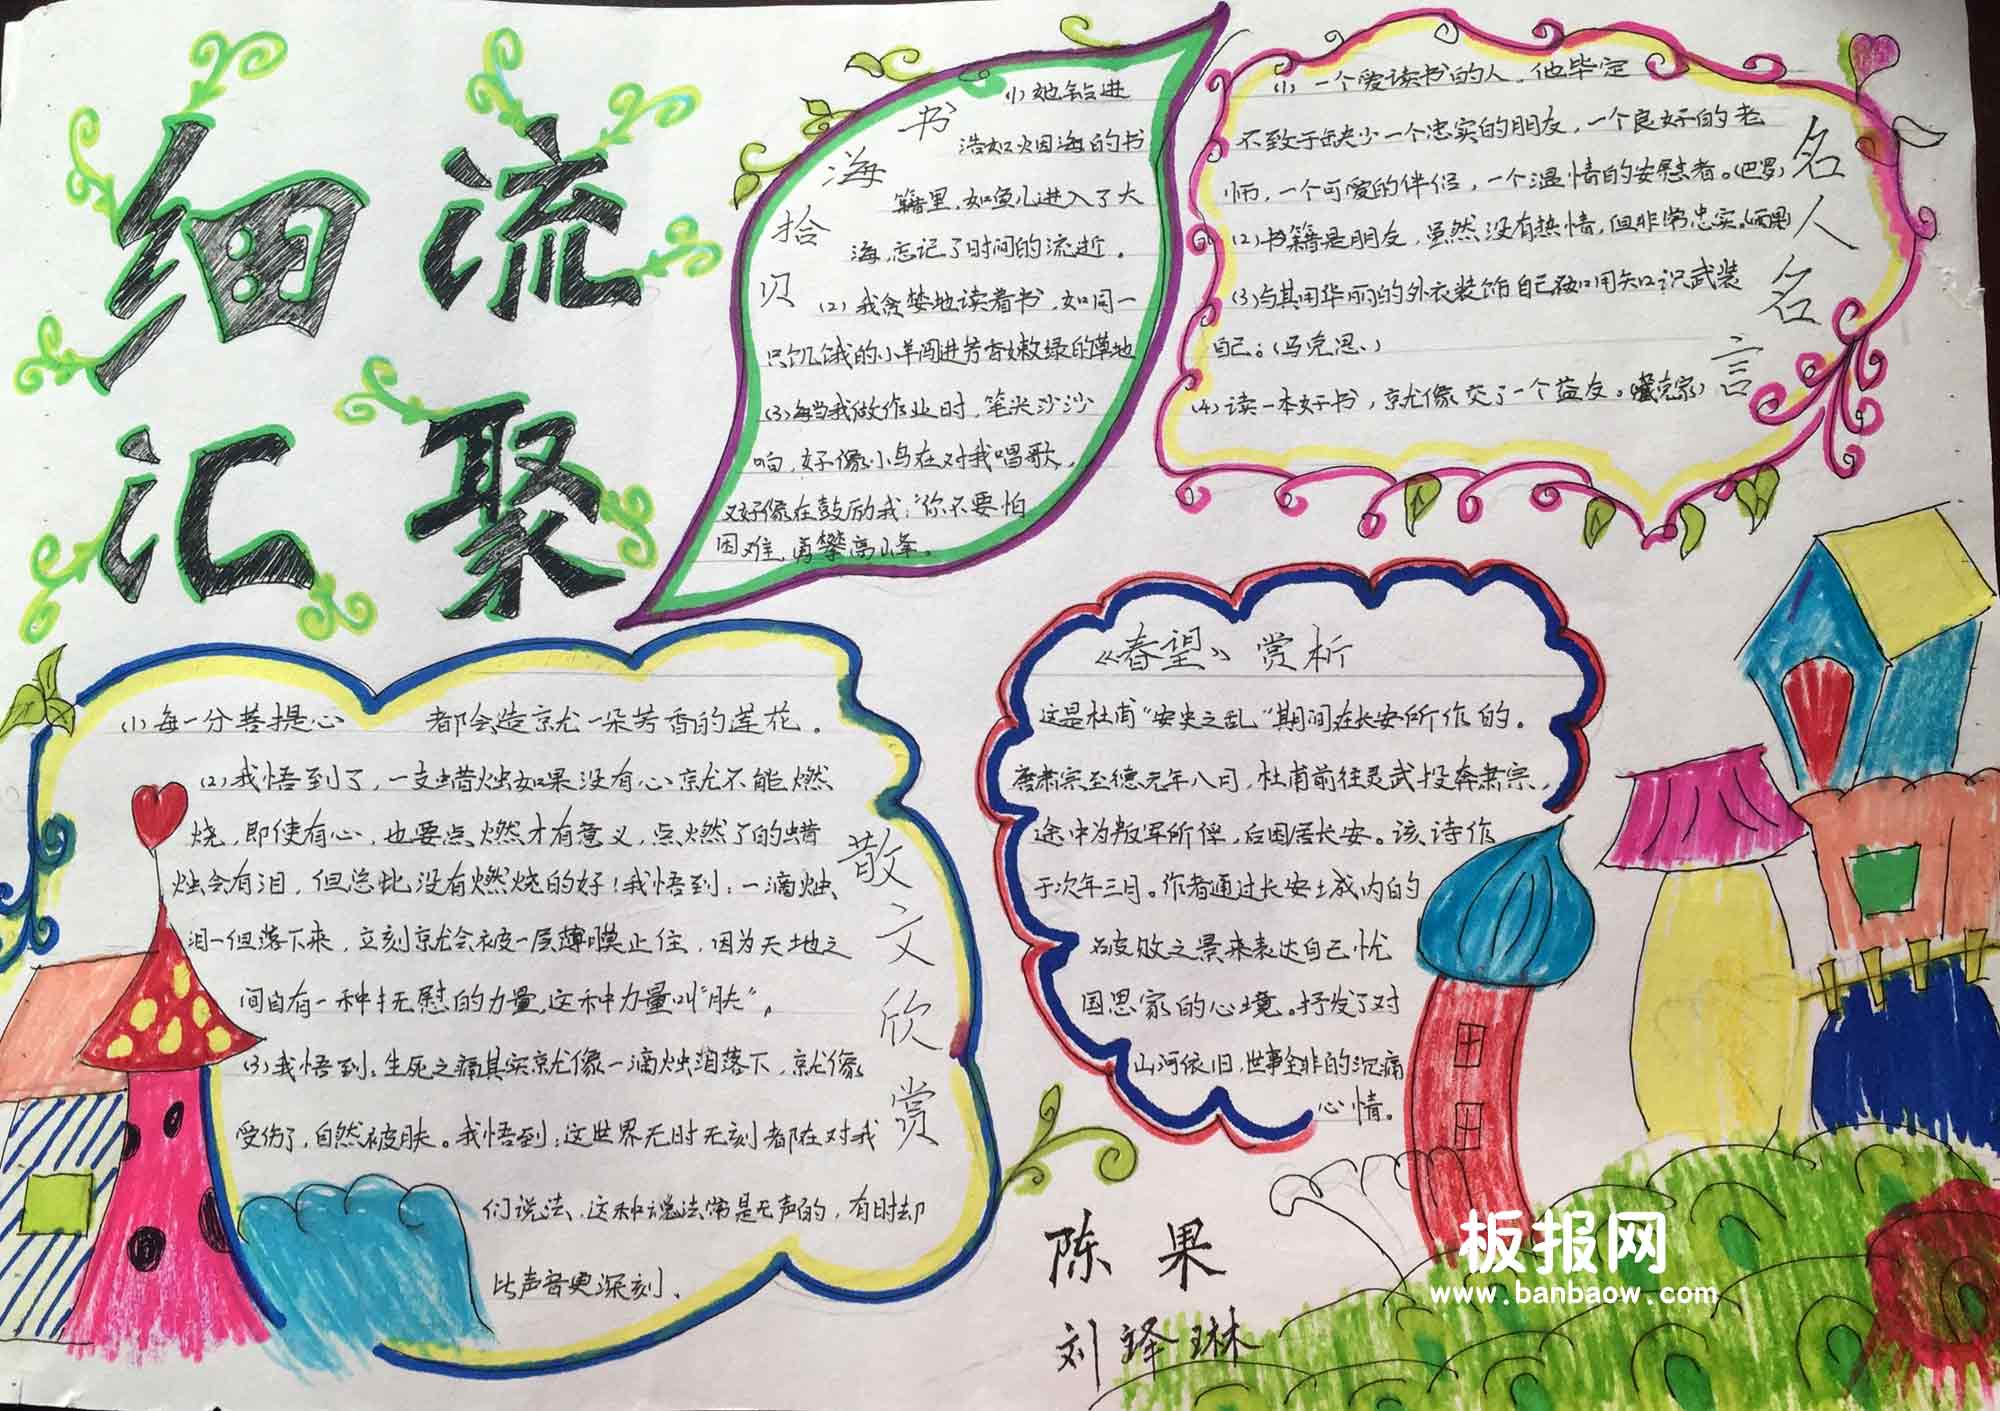 细流
汇聚
书海拾贝
(1) 她钻进
浩如烟海的书
籍里，如鱼儿进入了大
海，忘记了时间的流逝。
(2) 我贪婪地读着书，如同一
只饥饿的小羊闯进芳香嫩绿的草地
(3) 每当我做作业时，笔尖沙沙
响，好像小鸟在对我唱歌，
又好像在鼓励我：“你不要怕
困难，勇攀高峰。
名人名言
(1) 一个爱读书的人，他毕定
不致于缺少一个忠实的朋友，一个良好的老
师，一个可爱的伴侣，一个温情的安慰者。(巴罗)
(2) 书籍是朋友，虽然没有热情，但非常忠实。(雨果)
(3) 与其用华丽的外衣装饰自己不如用知识武装
自己。(马克思)
(4) 读一本好书，就像交了一个益友。(臧克家)
散文欣赏
(1) 每一分菩提心 都会造就一朵芳香的莲花。
(2) 我悟到了，一支蜡烛如果没有心就不能燃
烧，即使有心，也要点燃才有意义，点燃了的蜡
烛会有泪，但总比没有燃烧的好！我悟到：一滴烛
泪一但落下来，立刻就会被一层薄膜止住，因为天地之
间自有一种抚慰的力量，这种力量叫“肤”。
(3) 我悟到：生死之痛其实就像一滴烛泪落下，就像
受伤了，自然被肤。我悟到：这世界无时无刻都在对我
们说法，这种说法常是无声的，有时却
比声音更深刻。
《春望》赏析
这是杜甫“安史之乱”期间在长安所作的。
唐肃宗至德元年八月，杜甫前往灵武投奔肃宗，
途中为叛军所俘，后困居长安。该诗作
于次年三月。作者通过长安城内的
破败之景来表达自己忧
国思家的心境。抒发了对
山河依旧，世事全非的沉痛
心情。
陈果
刘锋琳
板报网
www.banbaow.com